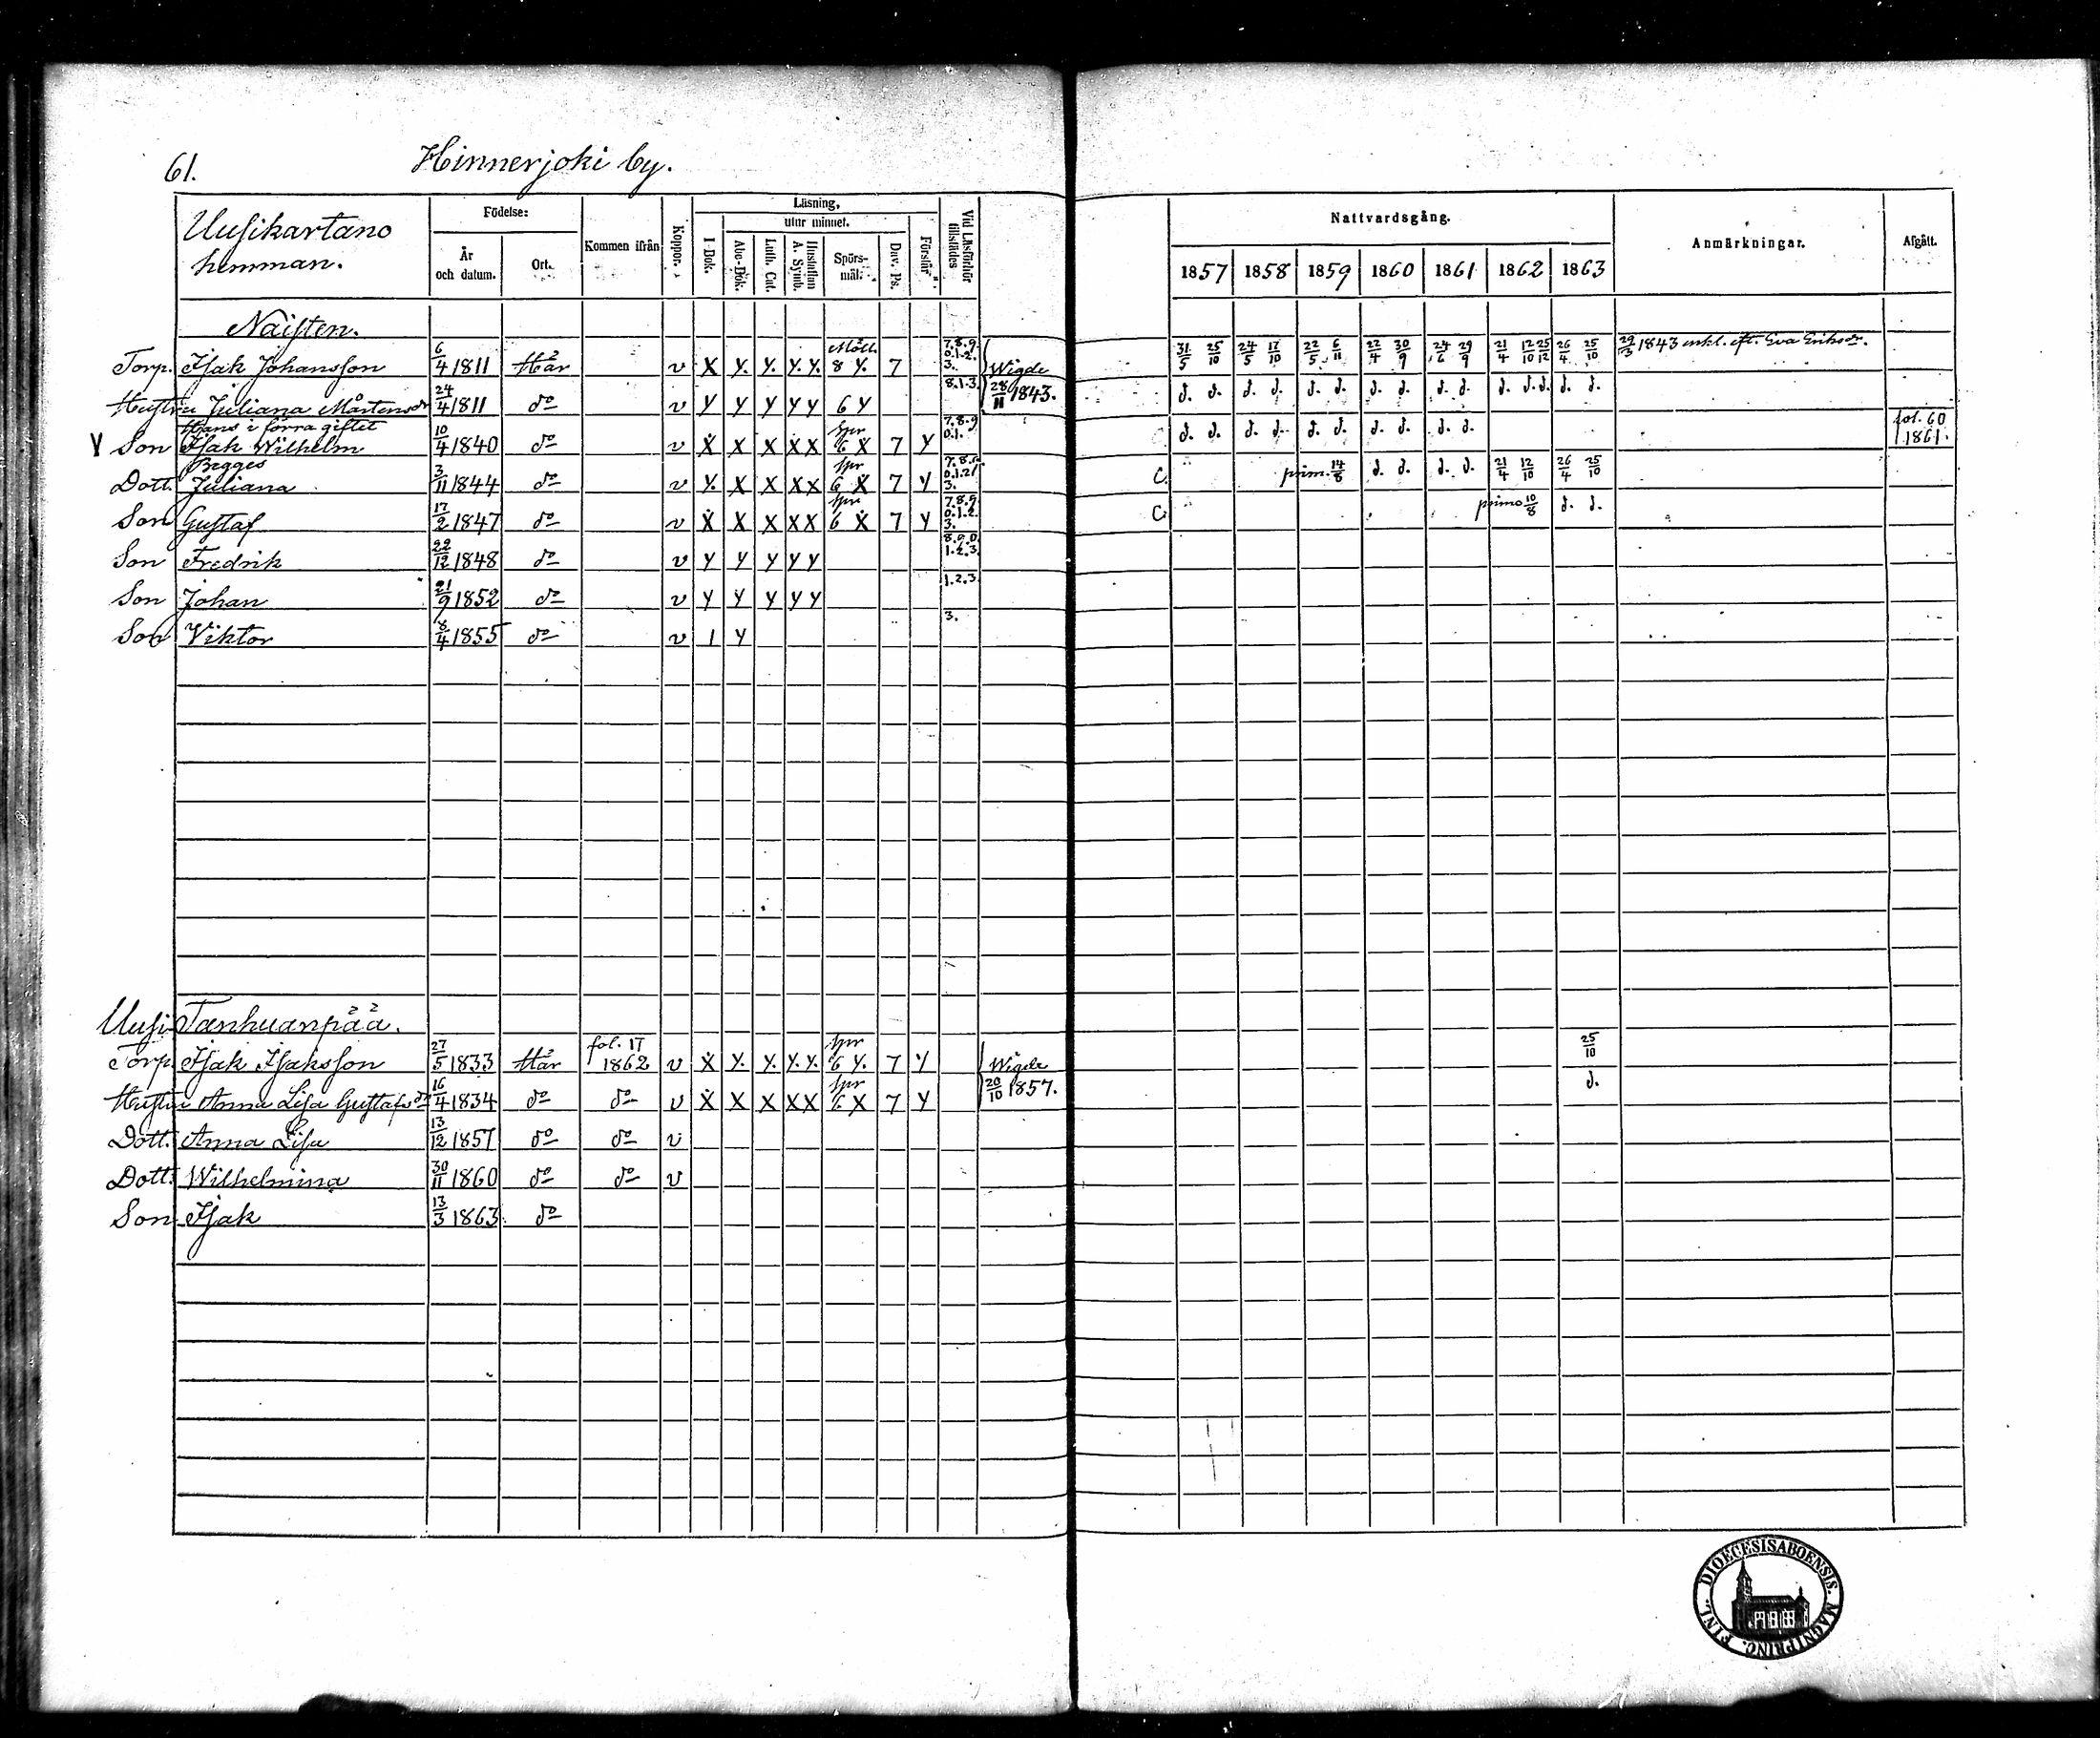 61. Hinnerjoki by.
Uusikartano hemman.
Födelse:
År och datum.
Ort.
Kommen ifrån
Koppor.
Läsning,
I Bok.
utur minnet.
Abc-Bok.
Luth. Cat.
Hustaflan A. Symb.
Spörsmål.
Dav. Ps.
Förstår
Vid Läsförhör tillstädes
Nattvardsgång.
1857 1858 1859 1860 1861 1862 1863
Anmärkningar.
Afgått.
Naisten.
Torp. Isak Johansson 6/4 1811 Här v X y. y. y. y. 8 y. 7 7.8.9. 0.1.2. 3. Wigde 31/5 25/10 24/5 17/10 22/5 6/11 22/4 30/9 24/6 29/9 21/4 12/10 25/12 26/4 25/10 29/3 1843 enkl. eft. Eva Eriksdr.
Hustru Juliana Mårtensdr 24/4 1811 do v y y y y y 6 y 8.1.3. 28/11 1843. d. d. d. d. d. d. d. d. d. d. d. d. d. d. d.
Hans i förra giftet
Y Son Isak Wilhelm 10/4 1840 do v X X X X X Spr 6 X 7 y 7.8.9 0.1. d. d. d. d. d. d. d. d. d. d. fol. 60 1861.
Begges
Dott. Juliana 3/11 1844 do v y. X X X X Spr 6 X 7 y 3. C. prim. 14/8 d. d. d. d. 21/4 12/10 26/4 25/10
Son Gustaf 17/2 1847 do v X X X X X Spr 6 X 7 y 7.8.9. 0.1.2. 3. C. primo 10/8 d. d.
Son Fredrik 22/12 1848 do v y y y y y 8.9.0. 1.2.3.
Son Johan 21/9 1852 do v y y y y y 1.2.3.
Son Viktor 8/4 1855 do v 1 y 3.
Uusi-Tanhuanpää.
Torp. Isak Isaksson 27/5 1833 Här fol. 17 1862 v X y. y. y. y. Spr 6 y. 7 y Wigde 25/10
Hustru Anna Lisa Gustafsdr 16/4 1834 do do v X X X X X Spr 6 X 7 y 20/10 1857. d.
Dott. Anna Lisa 13/12 1857 do do v
Dott. Wilhelmina 30/11 1860 do do v
Son Isak 13/3 1863. do
DIOECESIS ABOENSIS. MAGNI PRINC. FINL.